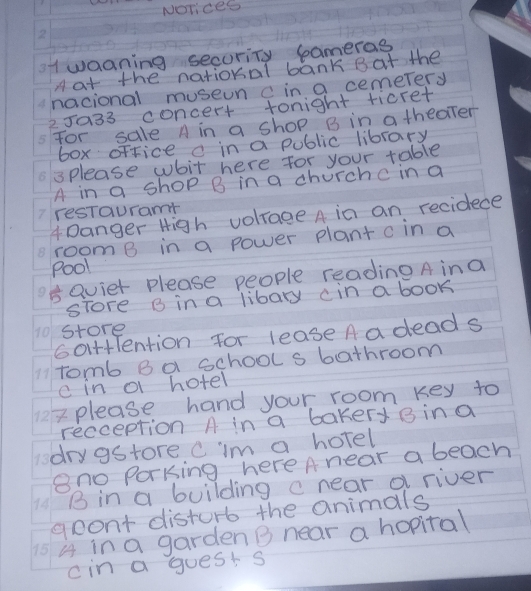 NOTICES
1 waaning security cameras
A at the national bank B at the
nacional museun C in a cemetery
2 Jazz concert tonight ticret
for sale A in a shop B in a theater
box office C in a public library
3 please wbit here for your table
A in a shop B in a church C in a
restauramt
4 Danger High voltage A in an recidece
room B in a power plant C in a
pool
5 quiet please people reading A in a
store B in a libary C in a book
store
6 atttention for lease A a dead s
tomb B a school s bathroom
C in a hotel
7 please hand your room key to
recception A in a bakery B in a
drygstore C im a hotel
8 no parking here A near a beach
B in a building C near a river
9 dont disturb the animals
A in a garden B near a hopital
C in a guest s